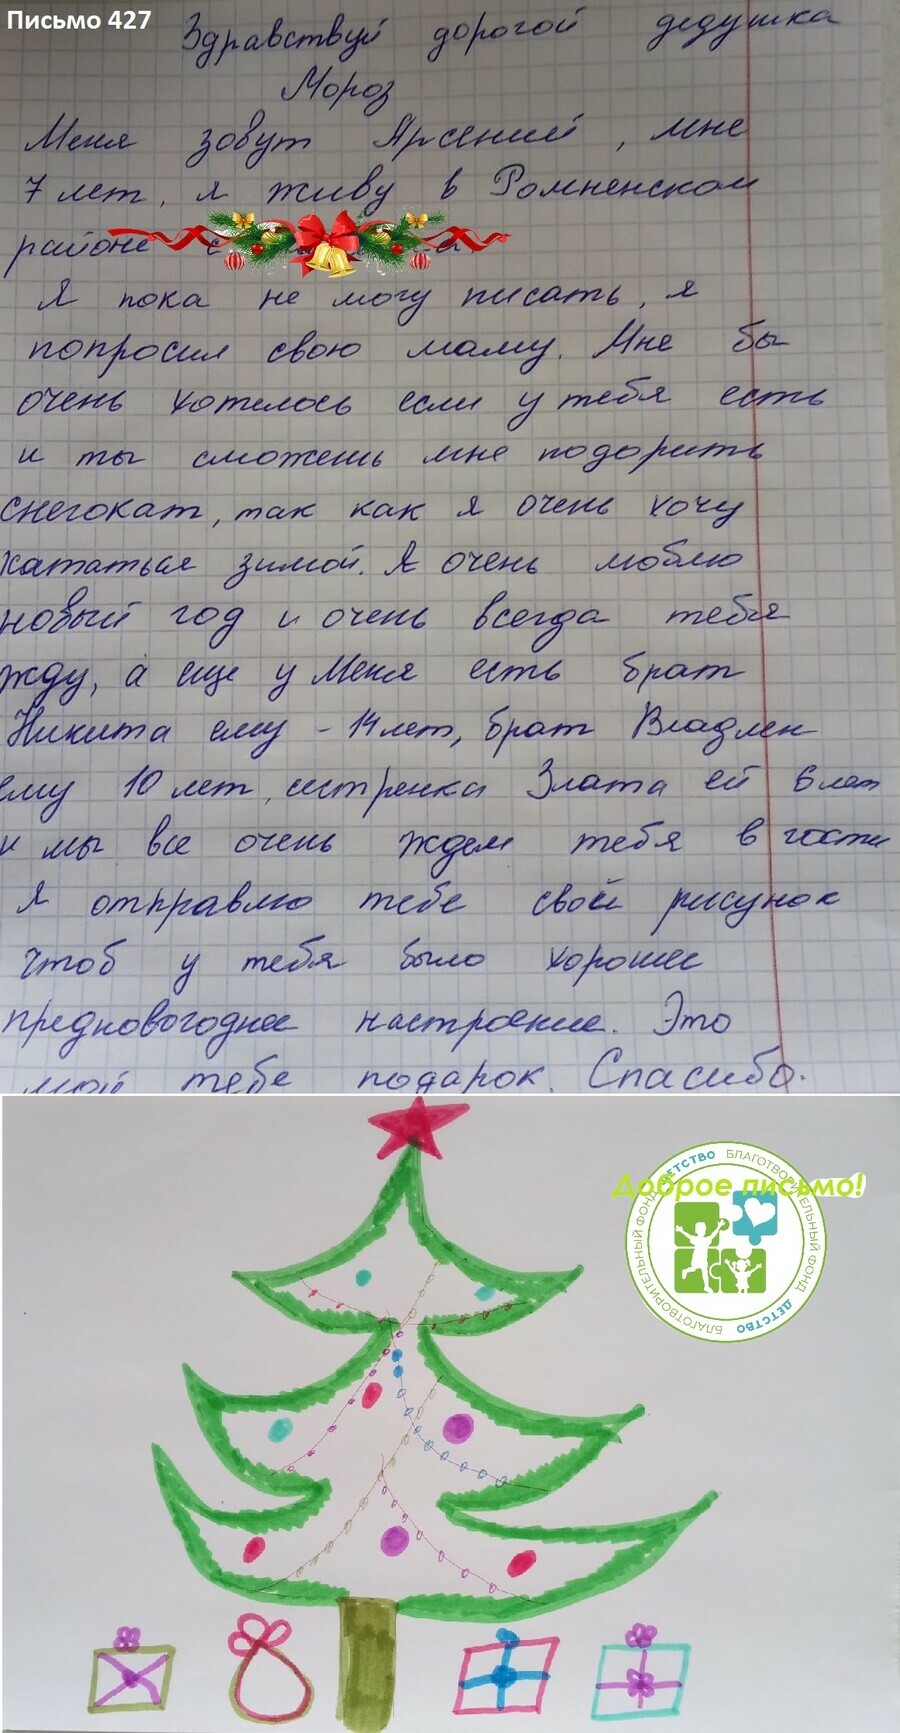 Письмо 427
Здравствуй дорогой дедушка
Мороз
Меня зовут Арсений, мне
7 лет, я живу в Ромненском
районе с
Я пока не могу писать, я
попросил свою маму. Мне бы
очень хотелось если у тебя есть
и ты сможешь мне подарить
снегокат, так как я очень хочу
кататься зимой. Я очень люблю
новый год и очень всегда тебя
жду, а еще у меня есть брат
Никита ему - 14 лет, брат Владлен
ему 10 лет, сестренка Злата ей 6 лет
и мы все очень ждем тебя в гости
Я отправлю тебе свой рисунок
чтоб у тебя было хорошее
предновогоднее настроение. Это
мой тебе подарок. Спасибо.
Доброе письмо!
БЛАГОТВОРИТЕЛЬНЫЙ ФОНД ДЕТСТВО
БЛАГОТВОРИТЕЛЬНЫЙ ФОНД ДЕТСТВО